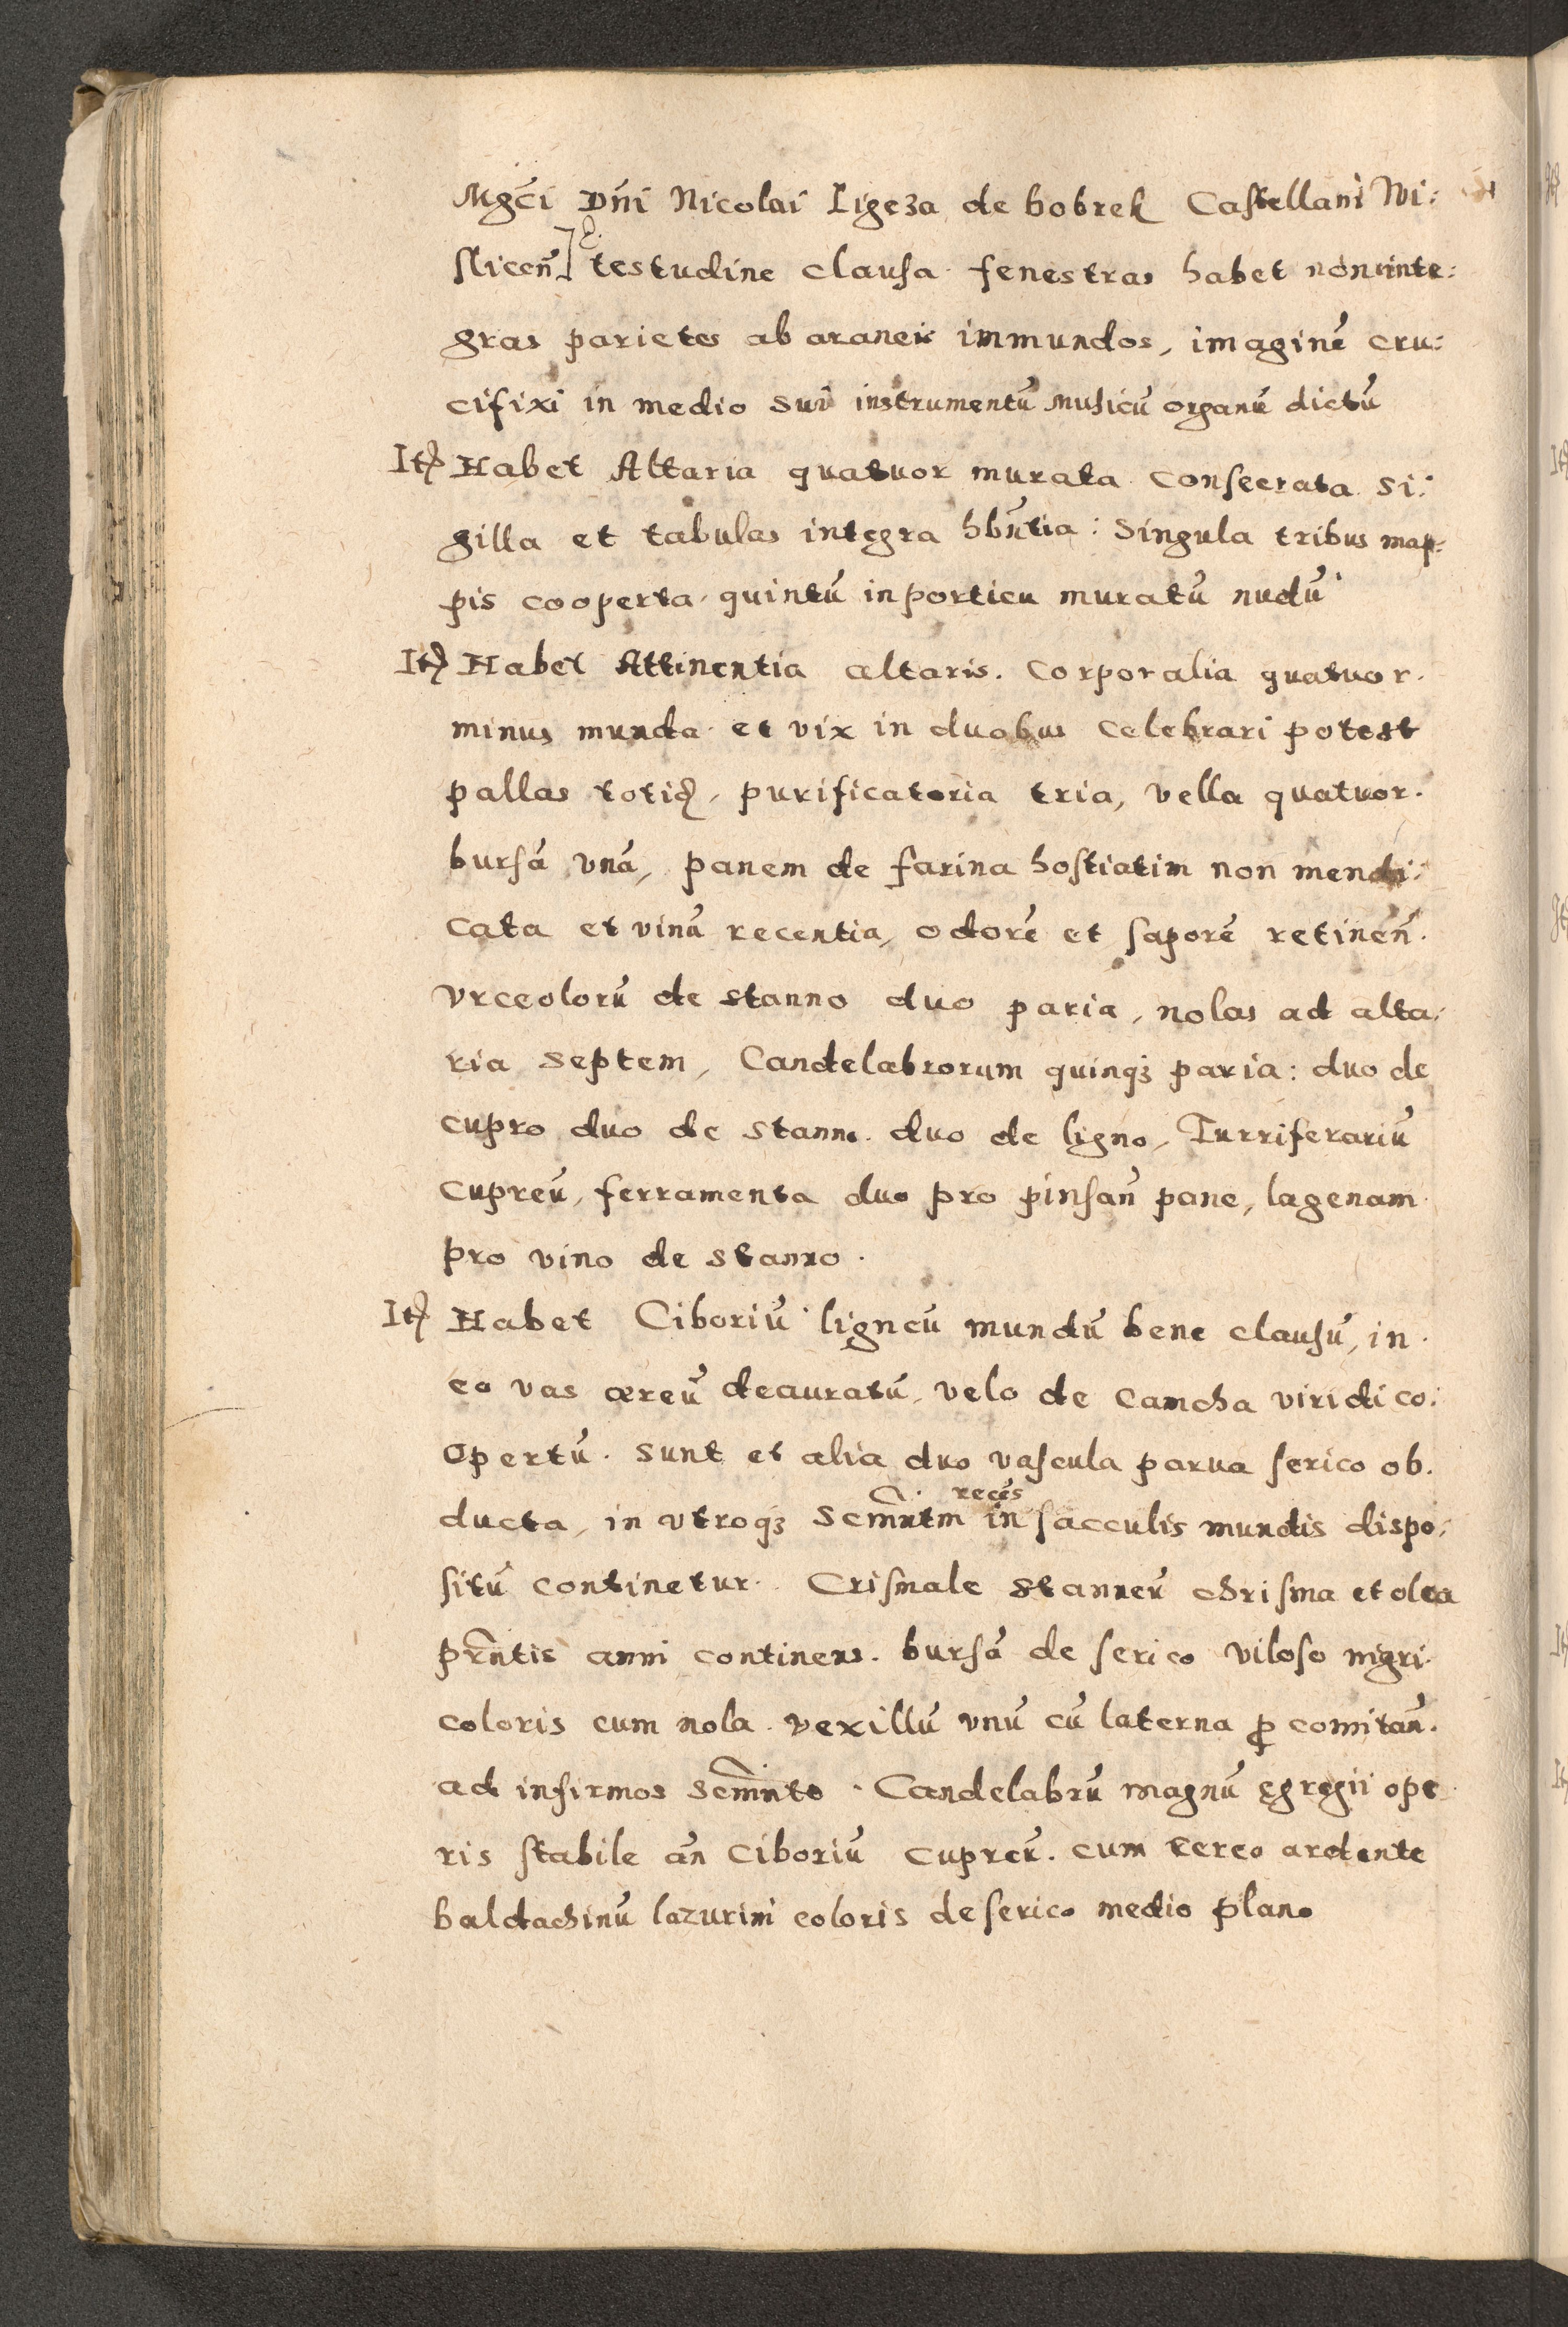 Mgci Dni Nicolai Ligeza de bobrek Castellani Wi:
slicen] testudine clausa. fenestras habet non inte:
gras parietes ab araneis immundos, imaginē cru:
cifixi in medio sui instrumentū musicū organū dictū
Itẽ Habet Altaria quatuor murata consecrata si:
gilla et tabulas integra hbñtia: Singula tribus map:
pis cooperta. quintū in porticu muratū nudū
Itẽ Habet Attinentia altaris. Corporalia quatuor.
minus munda. et vix in duobus celebrari potest
pallas totiđ, purificatoria tria, vella quatuor.
bursā vnā, panem de farina hostiatim non mendi:
cata et vinū recentia, odorē et saporē retineñ.
vrceolorū de stanno duo paria, nolas ad alta:
ria septem, Candelabrorum quinqꝫ paria: duo de
cupro duo de stanno. duo de ligno, Turriferariū
cupreū, ferramenta duo pro pinsañ pane, lagenam
pro vino de stanno.
Itẽ Habet Ciboriū ligneū mundū bene clausū, in
eo vas æreū deauratū, velo de Cancha viridi co:
opertū. Sunt et alia duo vascula parua serico ob.
ducta, in vtroqꝫ Scm̃ntm in recẽs sacculis mundis dispo:
situ continetur. Crismale stanneū chrisma et olea
prñtis anni continens. bursā de serico viloso nigri.
coloris cum nola. vexillū vnū cū laterna ꝓ comitañ.
ad infirmos Scm̃nto. Candelabrū magnū egregii ope
ris stabile añ Ciboriū cupreū. cum cereo ardente
baldachinū lazurini coloris de serico medio plano